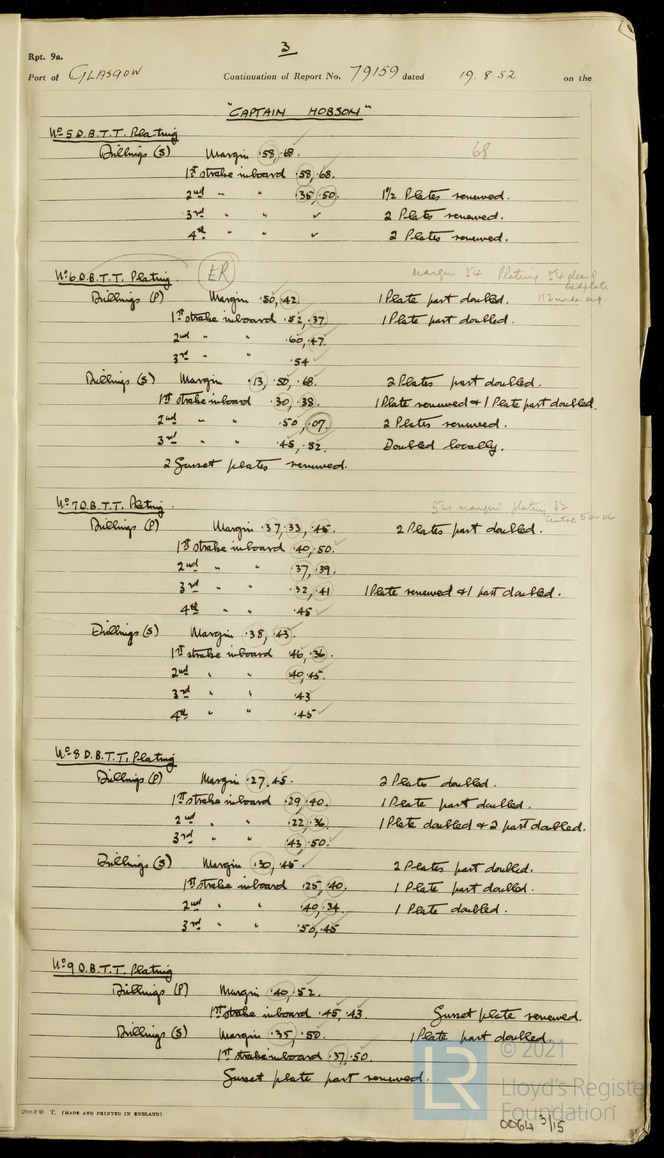 Rpt. 9a.
3
Port of GLASGOW Continuation of Report No. 79159 dated 19. 8. 52 on the
"CAPTAIN HOBSON"
No 5 D.B.T.T. Plating
Drillings (S) Margin .58, .68. 68
1st strake inboard .58, .68.
2nd " " .35, .50. 1½ Plates renewed.
3rd " " ✓ 2 Plates renewed.
4th " " ✓ 2 Plates renewed.
No 6 D.B.T.T. Plating. ER margin 54 Plating 54
bedplate
Drillings (P) Margin .50, .42. 1 Plate part doubled.
1st strake inboard .52, .37. 1 Plate part doubled.
2nd " " .60, .47.
3rd " " .54
Drillings (S) Margin .13, .50, .68. 2 Plates part doubled.
1st strake inboard .30, .38. 1 Plate renewed & 1 Plate part doubled.
2nd " " .50, .07. 2 Plates renewed.
3rd " " .45, .52. Doubled locally.
2 Gusset plates renewed.
No 7 D.B.T.T. Plating. 54 margin plating 52
Centre 50-46
Drillings (P) Margin .37, .33, .45. 2 Plates part doubled.
1st strake inboard .40, .50.
2nd " " .37, .39.
3rd " " .32, .41 1 Plate renewed & 1 part doubled.
4th " " .45
Drillings (S) Margin .38, .43.
1st strake inboard .46, .36.
2nd " " .40, .45.
3rd " " .43
4th " " .45
No 8 D.B.T.T. Plating
Drillings (P) Margin .27, .45. 2 Plates doubled.
1st strake inboard .29, .40. 1 Plate part doubled.
2nd " " .22, .36. 1 Plate doubled & 2 part doubled.
3rd " " .43, .50.
Drillings (S) Margin .30, .45. 2 Plates part doubled.
1st strake inboard .25, .40. 1 Plate part doubled.
2nd " " .40, .34. 1 Plate doubled.
3rd " " .50, .45
No 9 D.B.T.T. Plating
Drillings (P) Margin .40, .52.
1st strake inboard .45, .43. Gusset plate renewed.
Drillings (S) Margin .35, .50. 1 Plate part doubled.
1st strake inboard .37, .50.
Gusset plate part renewed.
T. (MADE AND PRINTED IN ENGLAND)
LR © 2021
Lloyd's Register
Foundation
0064 3/15